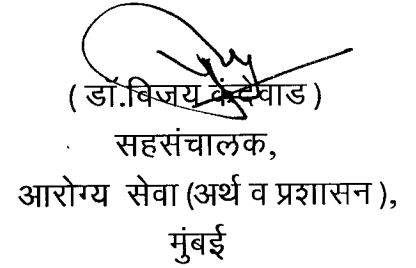 ( डॉ.विजय कंदेवाड )
सहसंचालक,
आरोग्य सेवा (अर्थ व प्रशासन ),
मुंबई